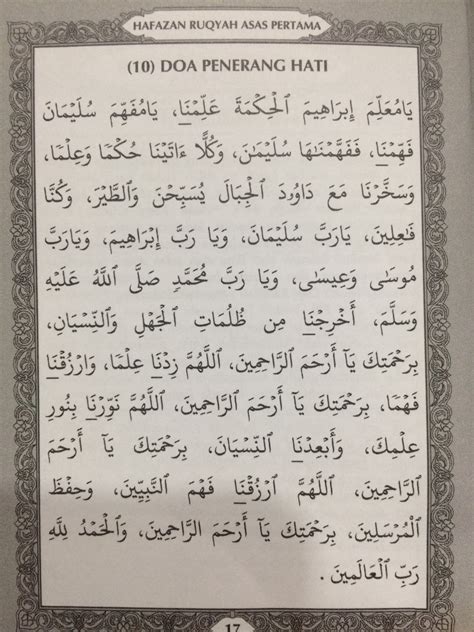 HAFAZAN RUQYAH ASAS PERTAMA
(10) DOA PENERANG HATI
يَامُعَلِّمَ إِبْرَاهِيمَ ٱلْحِكْمَةَ عَلِّمْنَا، يَامُفَهِّمَ سُلَيْمَانَ
فَهِّمْنَا، فَفَهَّمْنَـٰهَا سُلَيْمَـٰنَ، وَكُلًّا ءَاتَيْنَا حُكْمًا وَعِلْمًا،
وَسَخَّرْنَا مَعَ دَاوُۥدَ ٱلْجِبَالَ يُسَبِّحْنَ وَٱلطَّيْرَ، وَكُنَّا
فَـٰعِلِينَ، يَارَبَّ سُلَيْمَانَ، وَيَا رَبَّ إِبْرَاهِيمَ، وَيَارَبَّ
مُوسَى وَعِيسَى، وَيَا رَبَّ مُحَمَّدٍ صَلَّى ٱللَّهُ عَلَيْهِ
وَسَلَّمَ، أَخْرِجْنَا مِن ظُلُمَاتِ ٱلْجَهْلِ وَٱلنِّسْيَانِ،
بِرَحْمَتِكَ يَآ أَرْحَمَ ٱلرَّاحِمِينَ، ٱللَّهُمَّ زِدْنَا عِلْمًا، وَٱرْزُقْنَا
فَهْمًا، بِرَحْمَتِكَ يَآ أَرْحَمَ ٱلرَّاحِمِينَ، ٱللَّهُمَّ نَوِّرْنَا بِنُورِ
عِلْمِكَ، وَأَبْعِدْنَا ٱلنِّسْيَانَ، بِرَحْمَتِكَ يَآ أَرْحَمَ
ٱلرَّاحِمِينَ، ٱللَّهُمَّ ٱرْزُقْنَا فَهْمَ ٱلنَّبِيِّينَ، وَحِفْظَ
ٱلْمُرْسَلِينَ، بِرَحْمَتِكَ يَآ أَرْحَمَ ٱلرَّاحِمِينَ، وَٱلْحَمْدُ لِلَّهِ
رَبِّ ٱلْعَالَمِينَ .
17